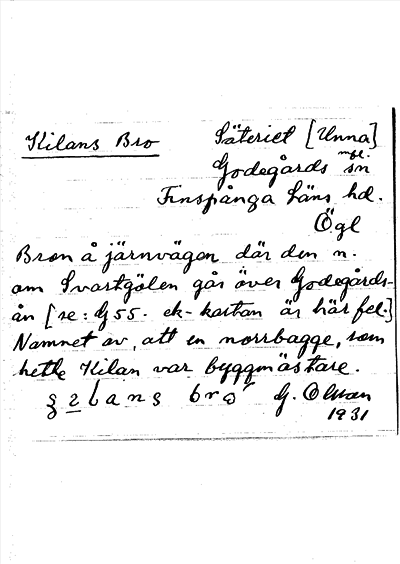 Kilans Bro
Säteriet [Unna]
Godegårds sn
Finspånga läns hd.
Ögl
Bron å järnvägen där den n.
om Svartgölen går över Godegårds-
ån [se: G 55. ek-kartan är här fel.]
Namnet av, att en norrbagge, som
hette Kilan var byggmästare.
bro G. Olsson
1931